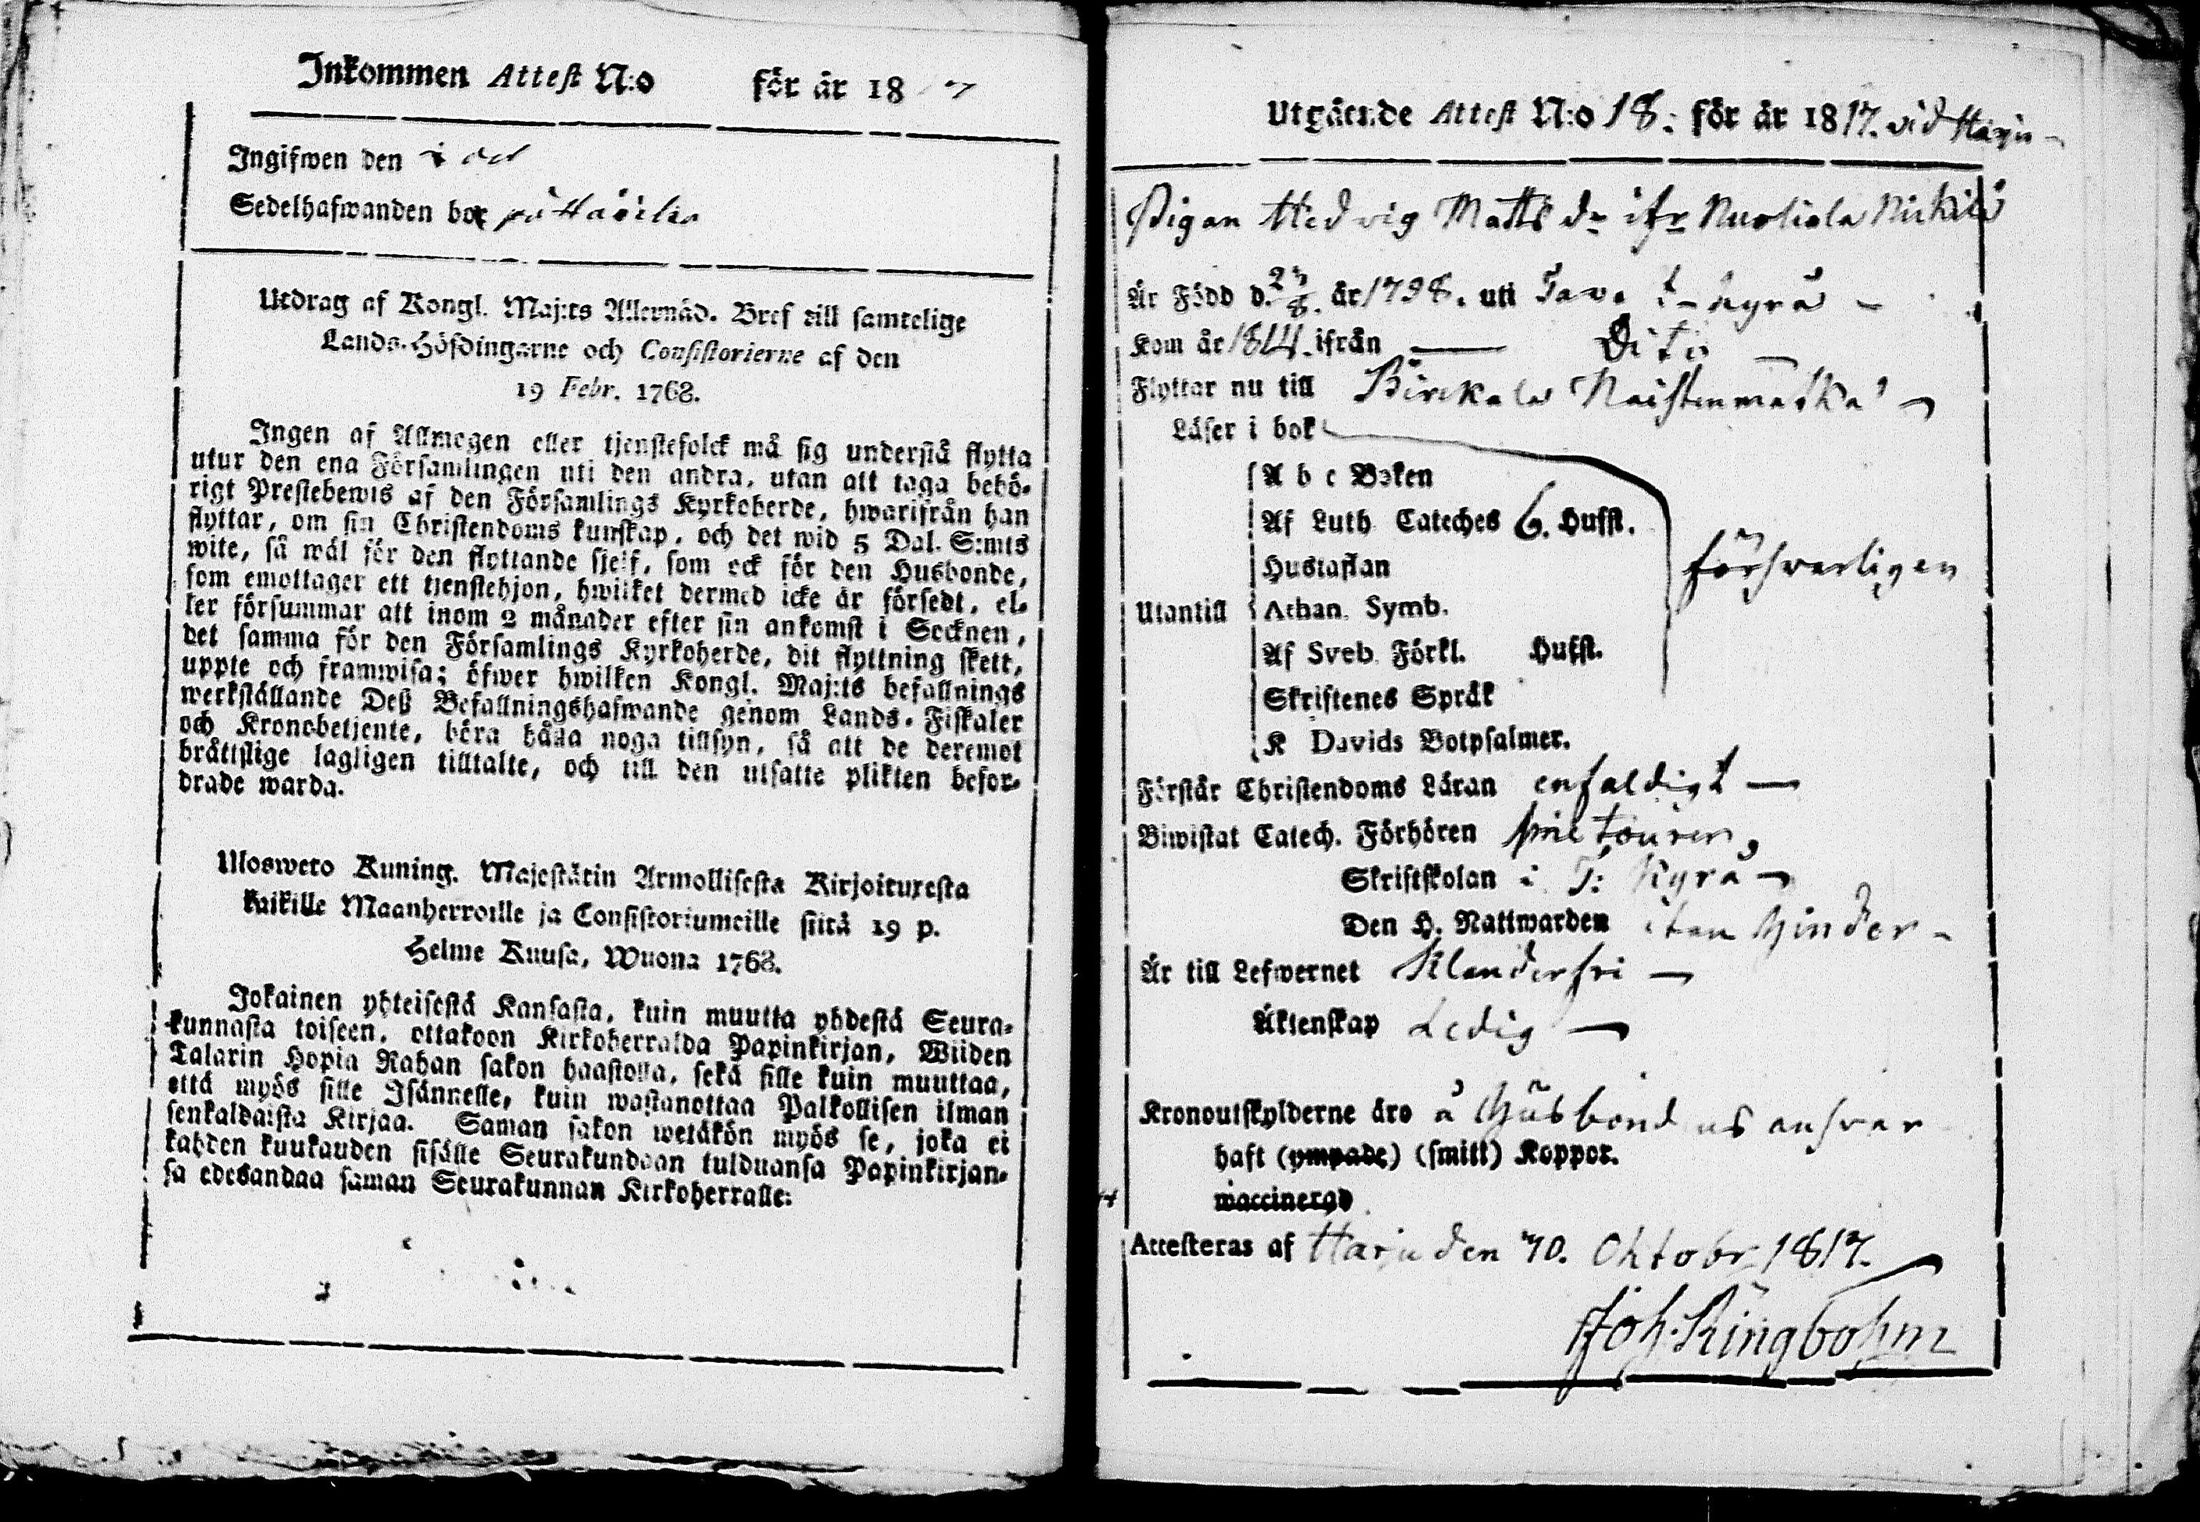 Inkommen Attest N:o för år 18 17
Ingifwen den
Sedelhafwanden bor på
Utdrag af Kongl. Maj:ts Allernåd. Bref till samtelige
Lands-Höfdingarne och Consistorierne af den
19 Febr. 1768.
Ingen af Allmogen eller tjenstefolck må sig understå flytta
utur den ena Församlingen uti den andra, utan att taga behö-
rigt Prestebewis af den Församlings Kyrkoherde, hwarifrån han
flyttar, om sin Christendoms kunskap, och det wid 5 Dal. S:mts
wite, så wäl för den flyttande sjelf, som ock för den Husbonde,
som emottager ett tjenstehjon, hwilket dermed icke är försedt, el-
ler försummar att inom 2 månader efter sin ankomst i Socknen,
det samma för den Församlings Kyrkoherde, dit flyttning skett,
uppte och framwisa; öfwer hwilken Kongl. Maj:ts befallnings
werkställande Deß Befallningshafwande genom Lands-Fiskaler
och Kronobetjente, böra hålla noga tillsyn, så att de deremot
bråttslige lagligen tilltalte, och till den utsatte plikten befor-
drade warda.
Ulosweto Kuning. Majestätin Armollisesta Kirjoituxesta
kaikille Maanherroille ja Consistoriumeille siitä 19 p.
Helme Kuusa, Wuona 1768.
Jokainen yhteisestä Kansasta, kuin muutta yhdestä Seura-
kunnasta toiseen, ottakoon Kirkoherralda Papinkirjan, Wiiden
Talarin Hopia Rahan sakon haastolla, sekä sille kuin muuttaa,
että myös sille Isännelle, kuin wastanottaa Palkollisen ilman
senkaldaista Kirjaa. Saman sakon wetäkön myös se, joka ei
kahden kuukauden sisälle Seurakundaan tulduansa Papinkirjan-
sa edesandaa saman Seurakunnan Kirkoherralle:
Utgående Attest N:o 18. för år 1817. vid Harju
Pigan Hedvig Matts dr ifr Nuoliala
Är Född d. år 1798. uti Tava t- Kyrå
Kom år 1814. ifrån Dito
Flyttar nu till Birckala Naistenmatka
Läser i bok
A b c Boken
Af Luth. Cateches 6. Hufst.
Hustaflan
försvarligen
Utantill Athan. Symb.
Af Sveb. Förkl. Hufst.
Skriftenes Språk
K Davids Botpsalmer.
Förstår Christendoms Läran enfaldigt
Biwistat Catech. Förhören
Skriftskolan i T: Kyrå
Den H. Nattwarden utan hinder
Är till Lefwernet Klanderfri
Äktenskap Ledig
Kronoutskylderne äro å Husbondens ansvar
haft (ympade) (smitt) Koppor.
waccinerad
Attesteras af Harju den 10. Oktobr 1817.
Joh. Ringbohm